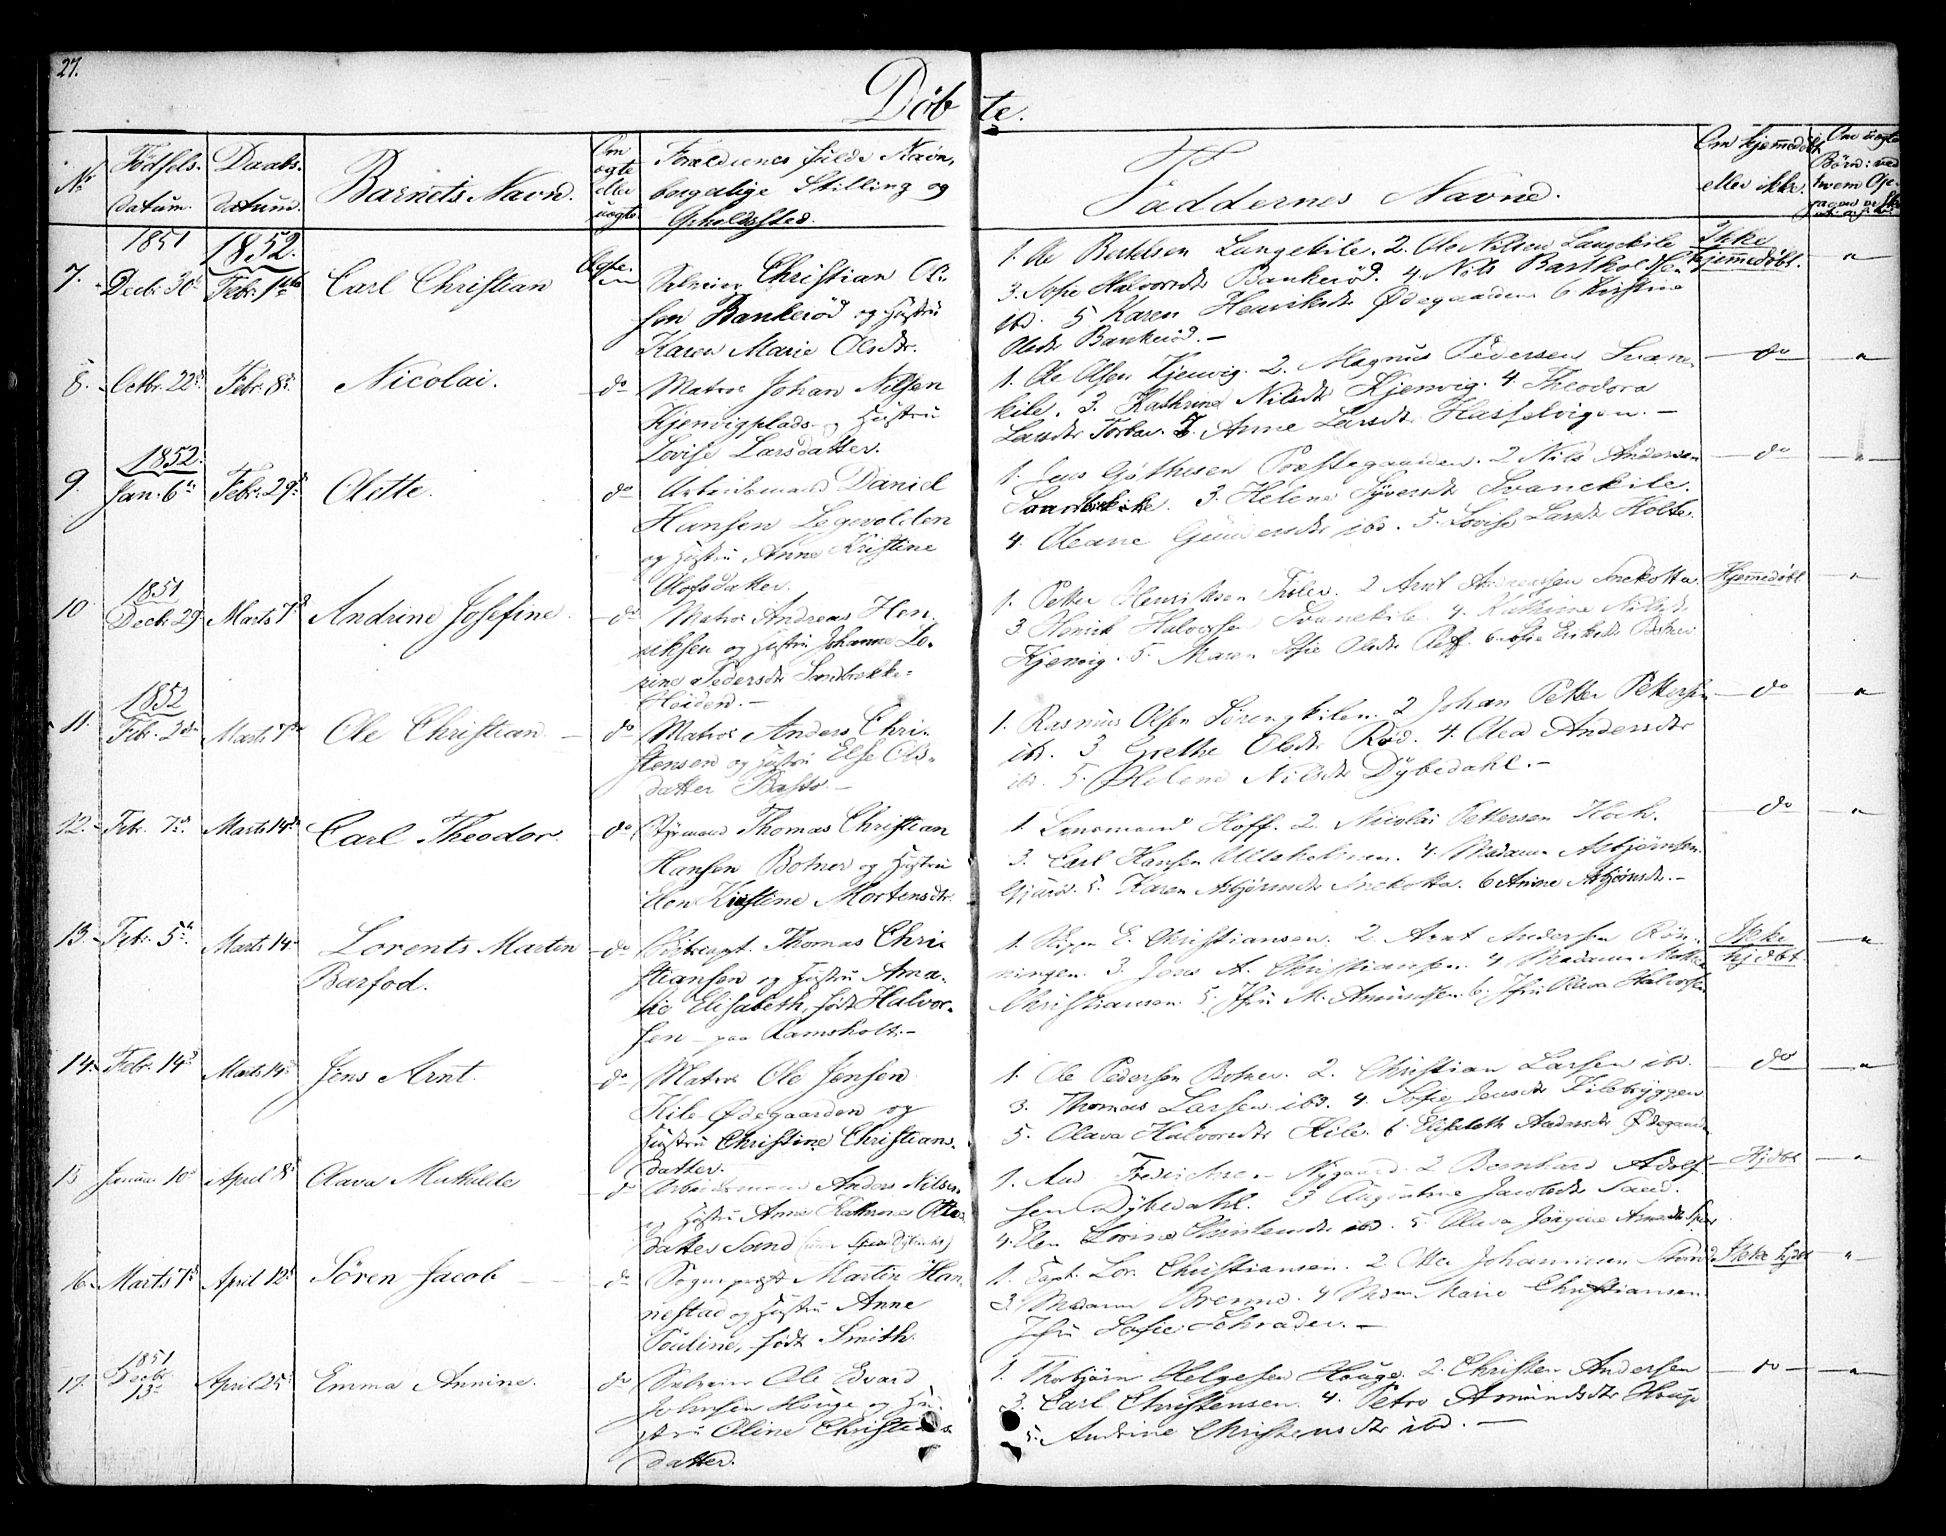 27.
Døbte.
No
Fødsels-
datum.
Daabs-
datum.
Barnets Navn.
Om
ægte
eller
uægte
Forældrenes fulde Navn,
borgerlige Stilling og
Opholdssted.
Faddernes Navne.
Om hjemmedøbt
eller ikke.
Om uægte
Børn: ved
1851
1852.
7. Decbr. 30 Febr. 1 Carl Christian
Selveier Christian Ol-
sen Bankerød og Hustru
Karen Marie Olsdtr.
1. Ole Bertelsen Langekile. 2. Ole Nilsen Langekile
3. Sofie Halvorsdtr Bankerød. 4. Nils
ibd. 5 Karen Henriksdtr Ødegaarden 6 Kirstine
Olsdtr Bankerød. -
Ikke
hjemmedøbt. "
8. Octbr. 22 Febr. 8 Nicolai. do
Matros Johan Nilsen
Kjenvigplads og Hustru
Lovise Larsdatter.
1. Ole Olsen Kjenvig. 2. Magnus Pedersen Svane-
kile. 3. Kathrine Nilsdtr Kjenvig. 4. Theodora
Larsdtr Torbal. 5. Anne Larsdtr Hasselvigen. -
do "
1852.
9. Jan. 6 Febr. 29 Olette. do
Arbeidsmand Daniel
Hansen Legevolden
og Hustru Anne Kristine
Olofsdatter.
1. Jens Præstegaarden. 2 Nils Andersen
3. Helene Syversdtr Svanekile.
4. Oleane Gundersdtr ibd. 5. Lovise Larsdtr Holte.
do "
1851
10. Decbr. 29 Marts 7 Andrine Josefine. do
Matros Andreas Hen-
riksen og Hustru Johanne Lo-
rine Pedersdtr Sandbrekke-
Heiden. -
1. Petter Henriksen 2 Arnt Andreassen Snekotta
3. Henrik Halvorsen Svanekile 4. Kathrine Nilsdtr
Kjenvig. 5. Maren Sofie Olsdtr 6. Sofie Eriksdtr Botner
Hjemmedøbt "
1852
11. Febr. 2 Marts 7 Ole Christian do
Matros Anders Chri-
stensen og Hustru Else Ols-
datter Basto -
1. Rasmus Olsen Sørengkilen. 2 Johan Petter Pettersen
ibd. 3. Grethe Olsdtr Rød. 4. Olea Andersdtr
ibd. 5. Helene Nilsdtr Dybedahl. -
do "
12. Febr. 7 Marts 14 Carl Theodor. do
Styrmand Thomas Christian
Hansen Botner og Hustru
Elen Kirstine Mortensdtr.
1. Lensmand Hoff. 2. Nicolai Pettersen Koch.
3. Carl Hansen 4. Madame Asbjørnsen
5. Karen Asbjørnsdtr Snekotta. 6 Anine Asbjørnsdtr. -
do "
13. Febr. 5 Marts 14 Lorents Martin
Barfod. do
Thomas Chri-
stiansen og Hustru Ama-
lie Elisabeth, født Halvor-
sen - paa Ramsholt. -
1. E. Christiansen. 2. Arnt Andersen Røn-
ningen. 3. Jens A. Christiansen. 4 Madame
Christiansen. 5. Jfru M. Amundsen. 6. Jfru Olava Halvorsen
Ikke
hjdbt. "
14. Febr. 14 Marts 14 Jens Arnt. do
Matros Ole Jensen
Kile Ødegaarden og
Hustru Christine Christians-
datter. -
1. Ole Pedersen Botner. 2. Christian Larsen ibd.
3. Thomas Larsen ibd. 4. Sofie Jensdtr Kilebryggen
5. Olava Halvorsdtr Kile. 6 Elisabeth Andersdtr Ødegaarden
do "
15 Januar 10 April 8 Olava Mathilde do
Arbeidsmand Anders Nilsen
og Hustru Anne Kathrine Otte-
datter Sand
1. And. Fredriksen Nygaard. 2 Bernhard Adolf-
sen Dybedahl. 3 Augustine Jacobsdtr Sand.
4. Elen Lovine Christensdtr ibd. 5 Olava Jørgine
Hjdbt "
16. Marts 7 April 12 Søren Jacob do
Sognepræst Martin Han-
nestad og Hustru Anne
Pouline, født Smith.
1. Capt. Lor. Christiansen. 2 Otter Johannesen
3. Madame Bremer. 4 Mdm Marie Christiansen
Jfru Sofie Schrader. -
Ikke hjdbt "
1851
17. Decbr
13 April 25 Emma Annine. do
Selveier Ole Edvard
Johnsen Houge og Hu-
stru Oline Christens-
datter.
1. Thorbjørn Helgesen Houge. 2. Christen Andersen
3. Carl Christensen. 4. Petra Amundsdtr Houge
5. Andrine Christensdtr ibd. -
do "